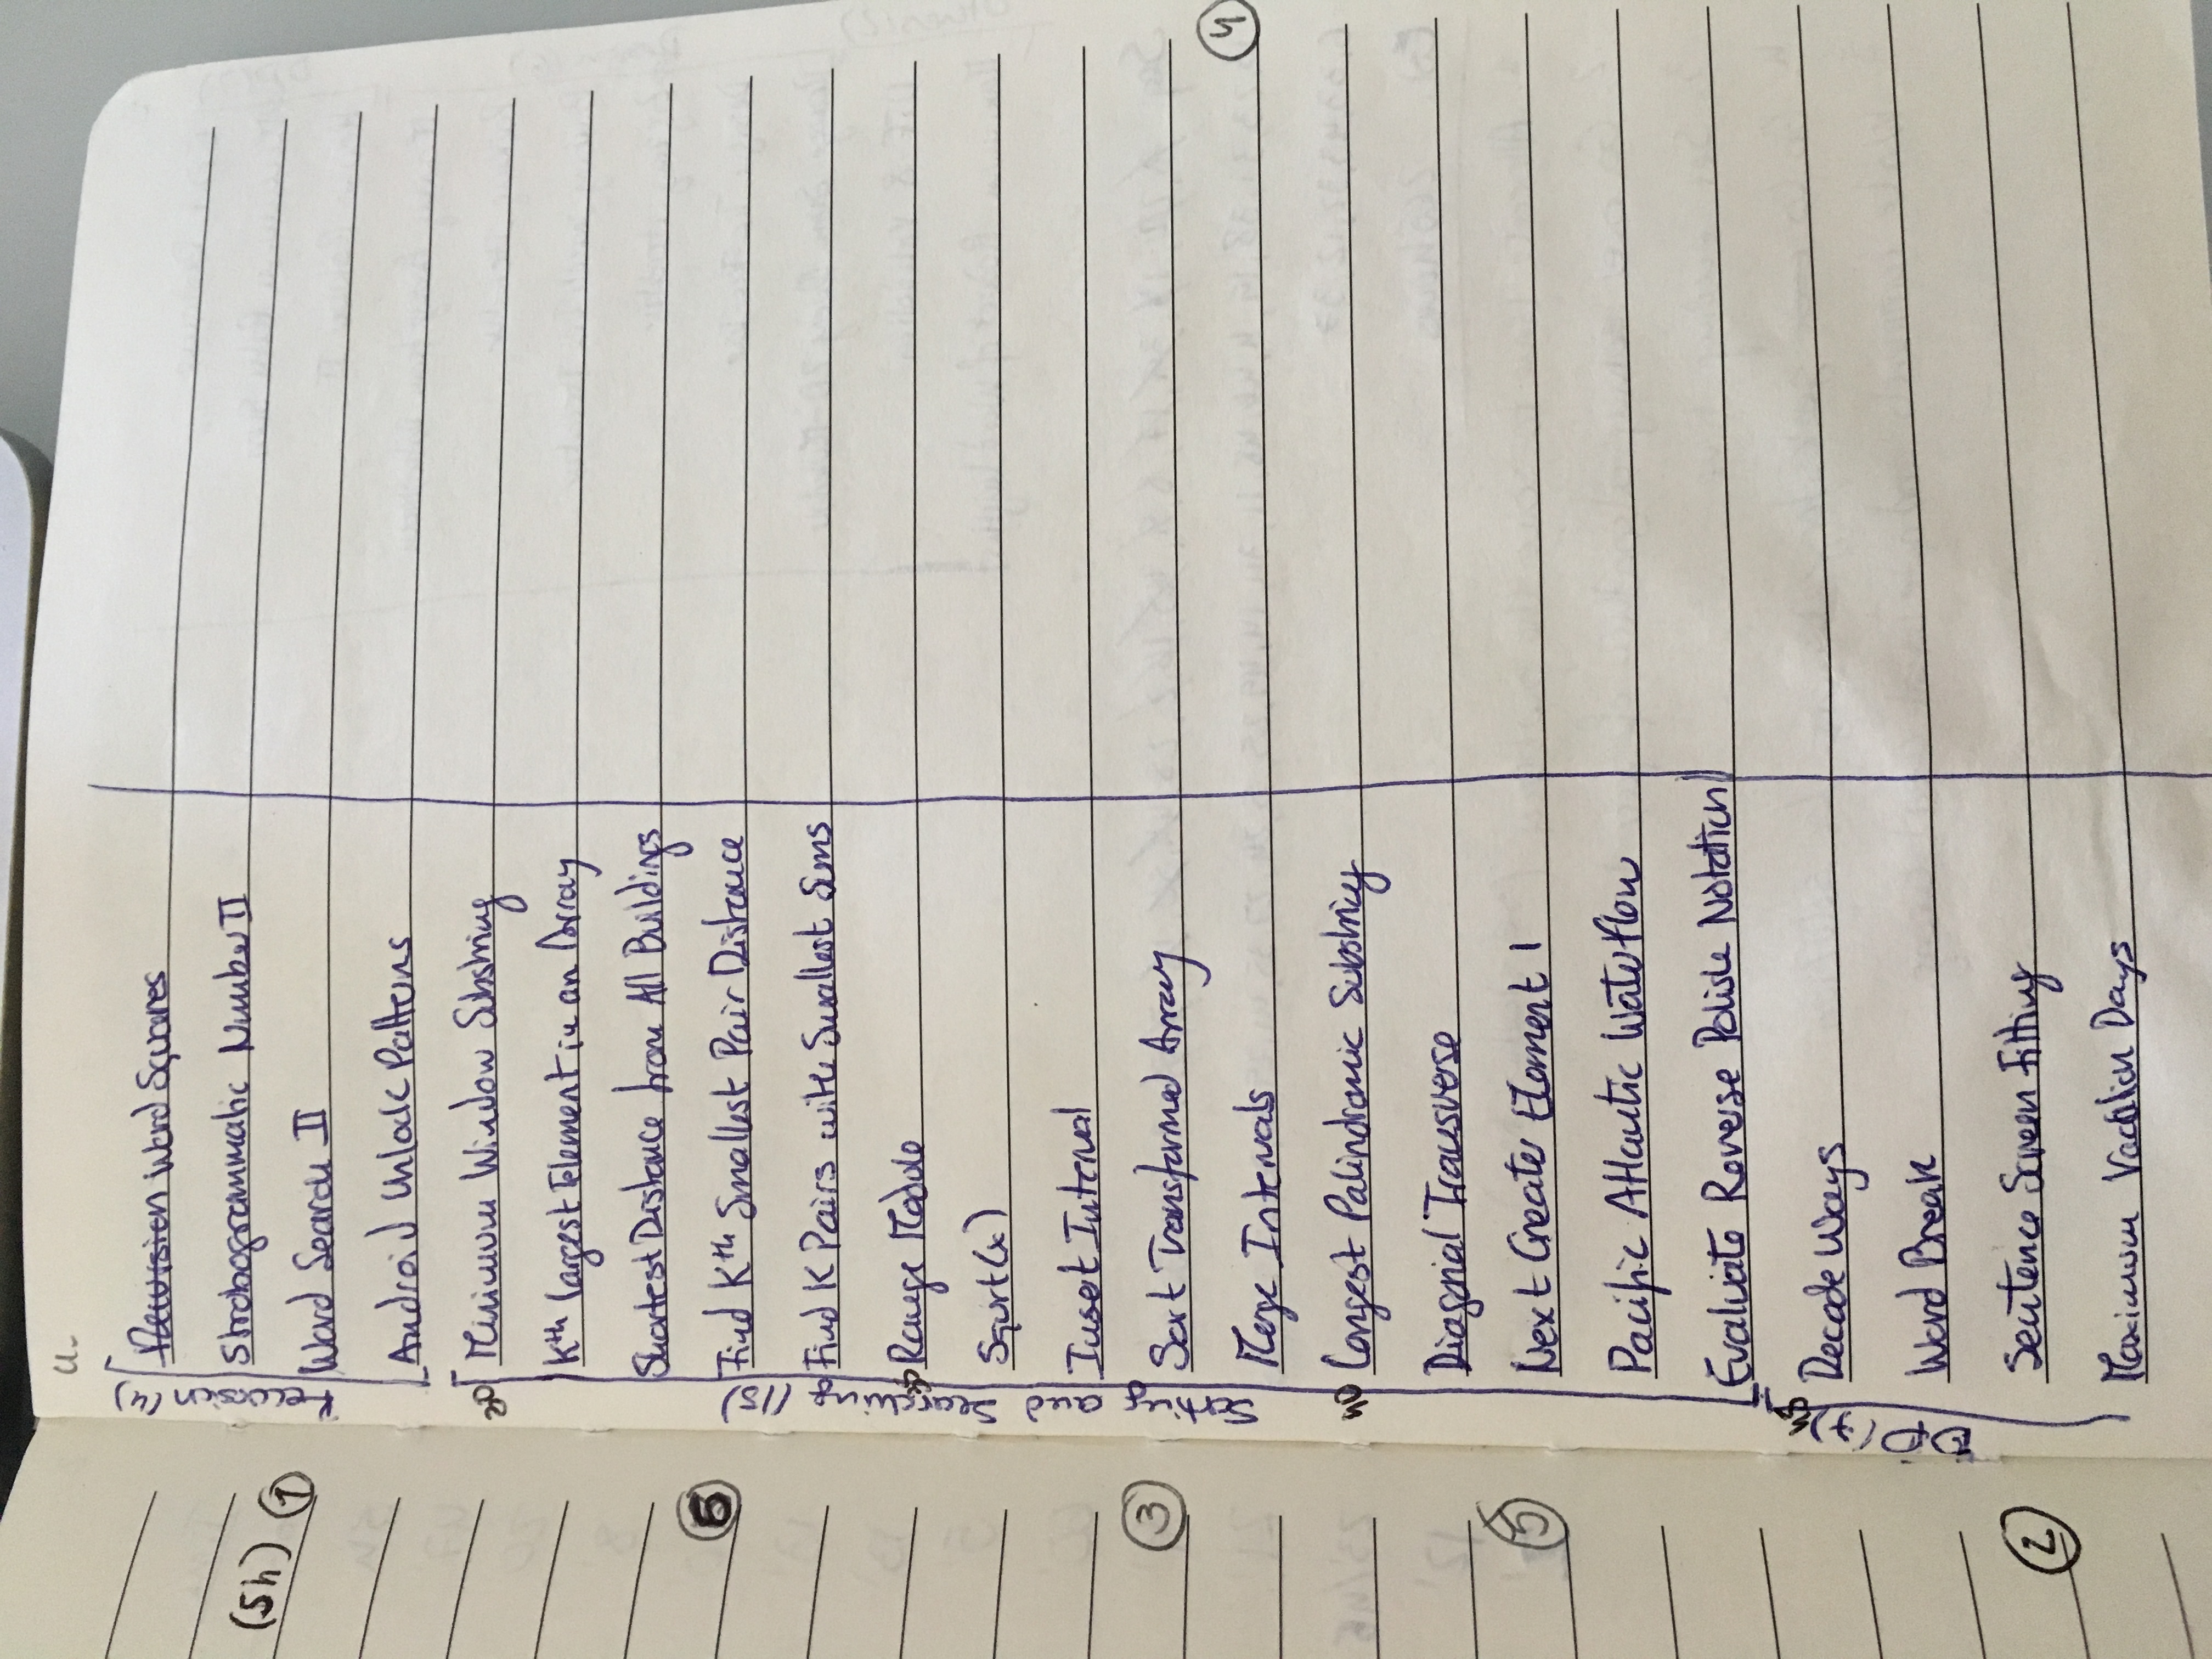 4.
Recursion (4)
Recursion Word Squares
Strobogrammatic Number II
(5h) 1
Word Search II
Android Unlock Patterns
30
Minimum Window Substring
Kth Largest Element in an Array
Shortest Distance from All Buildings
6
Sorting and Searching (15)
Find Kth Smallest Pair Distance
Find K Pairs with Smallest Sums
35
Range Module
Squrt(x)
Insert Interval
3
Sort Transformed Array
4
Merge Intervals
40
Longest Palindromic Substring
Diagonial Transverse
5
Next Greater Element 1
Pacific Atlantic Waterflow
Evaluate Reverse Polish Notation
45
DP (7)
Decode Ways
Word Break
2
Sentence Screen Fitting
Maximum Vacation Days